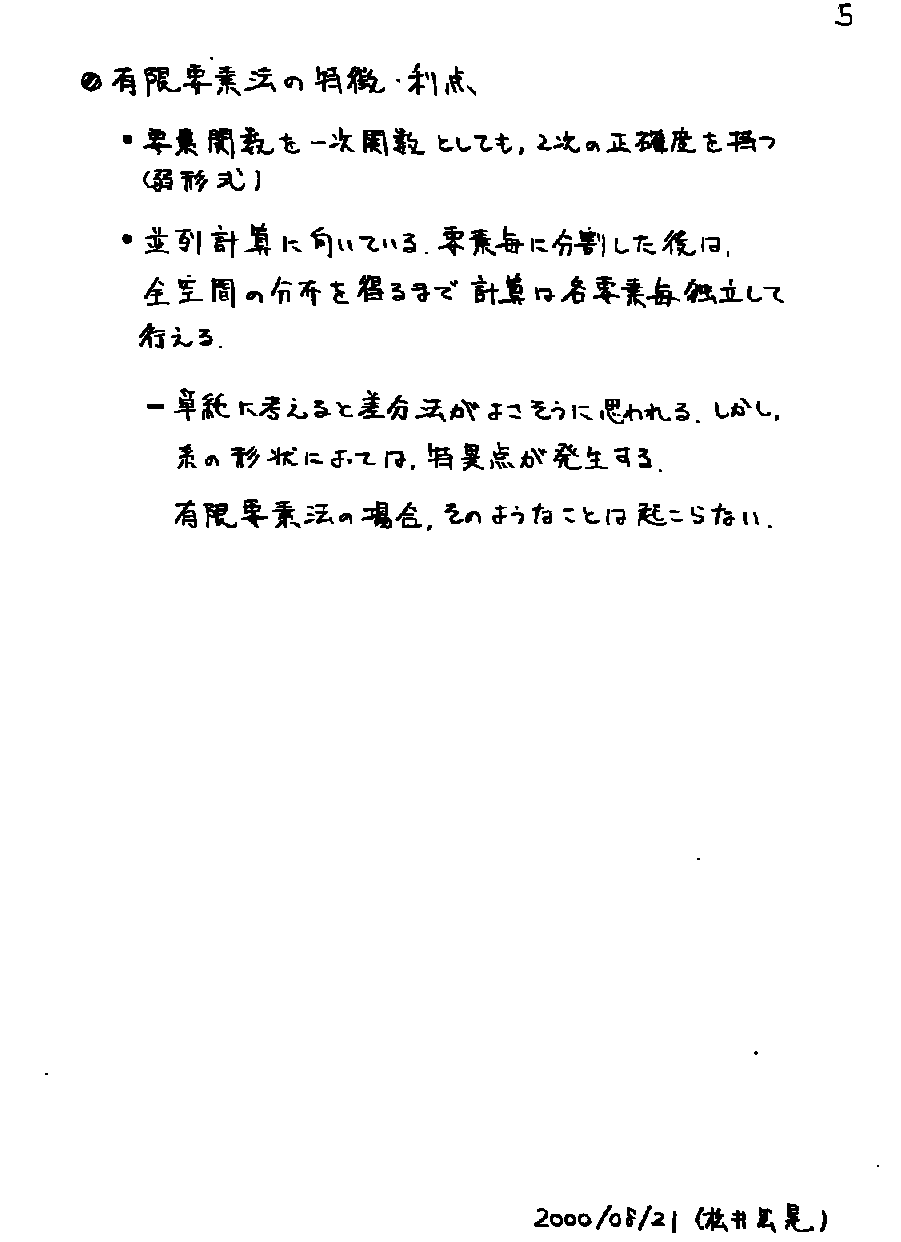 5
有限要素法の特徴・利点、
・要素関数を一次関数としても, 2次の正確度を持つ
(弱形式)
・並列計算に向いている. 要素毎に分割した後は,
全空間の分布を得るまで計算は各要素毎独立して
行える.
- 単純に考えると差分法がよさそうに思われる. しかし,
系の形状によっては, 特異点が発生する.
有限要素法の場合, そのようなことは起こらない.
2000/08/21 (松井